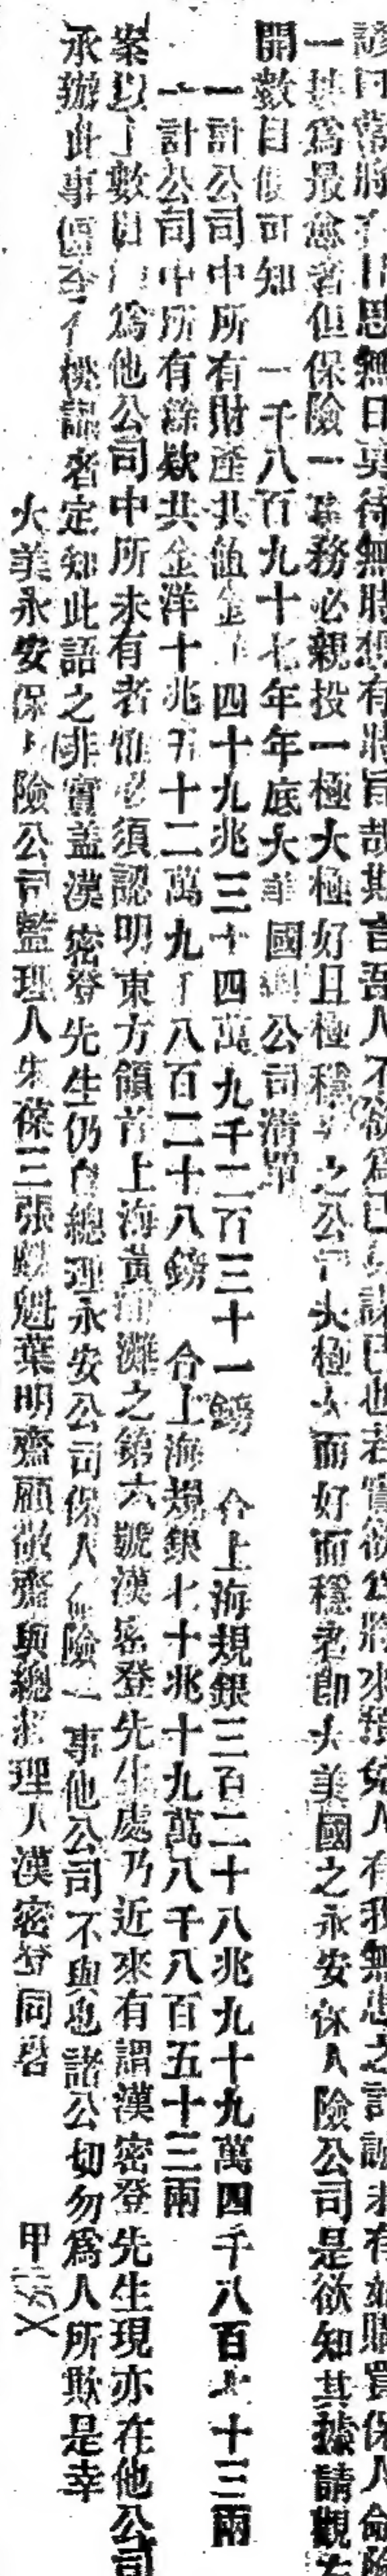 諺曰常將有日思無日莫待無時想有時旨哉斯言吾人不欲為已身謀已也若實欲為將來妻兒人有我無患之計誠未有如購買保人命險
一其為最愈者但保險一事務必親投一極大極好且極穩之公司夫極大而好而穩者即大美國之永安保人險公司是欲知其據請觀左
開數目便可知　一千八百九十七年年底大美國公司清單
一計公司中所有財產共值金四十九兆三十四萬九千二百三十一鎊　合上海規銀三百二十八兆九十九萬四千八百十三兩
一計公司中所有餘款共金洋十兆五十二萬九千八百二十八鎊　合上海規銀七十兆十九萬八千八百五十三兩
案以上數目為他公司中所未有者惟必須認明東方領首上海黃浦灘之第六號漢密登先生處乃近來有謂漢密登先生現亦在他公司
承辦此事僞查者定知此語之非實蓋漢密登先生仍自總理永安公司保人險一事他公司不與也諸公切勿為人所欺是幸
大美永安保人險公司監理人朱葆三張魁葉明齋顧敬齋與總理人漢密登同啓　甲